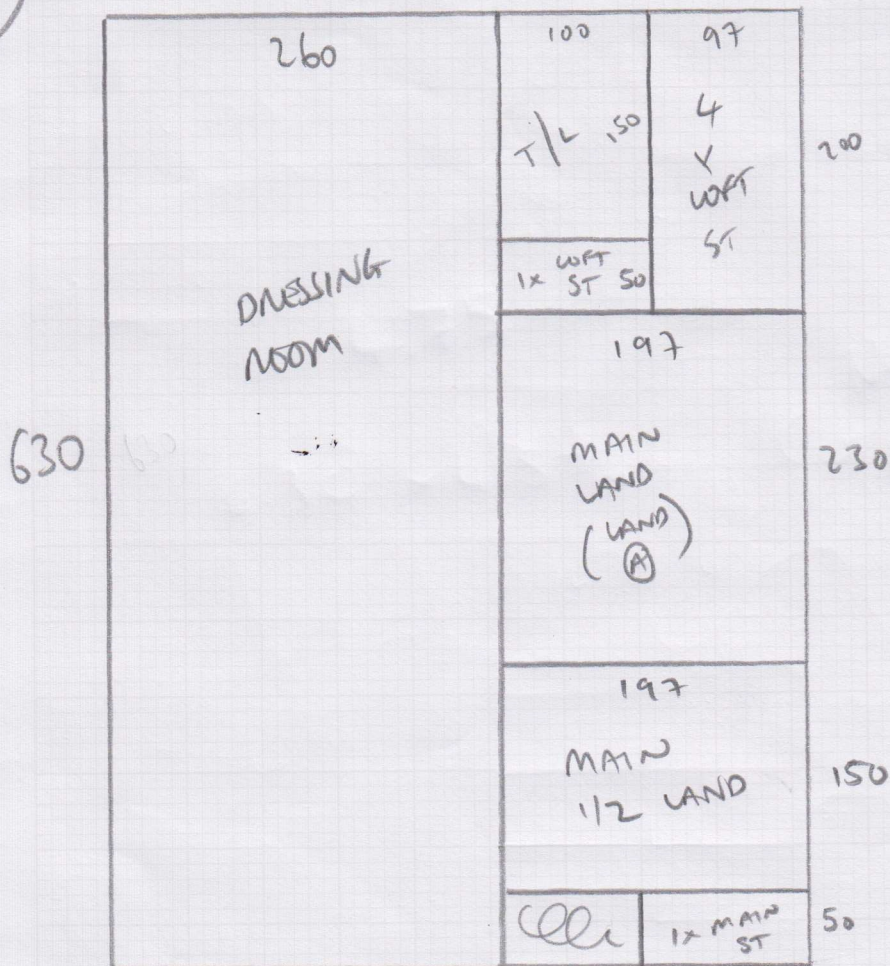 260
100
97
T/L 150
4
Y
LOFT
ST
200
1x LOFT
ST 50
DRESSING
ROOM
197
MAIN
LAND
(LAND)
A
630
630
230
197
MAIN
1/2 LAND
150
1x MAIN
ST
50